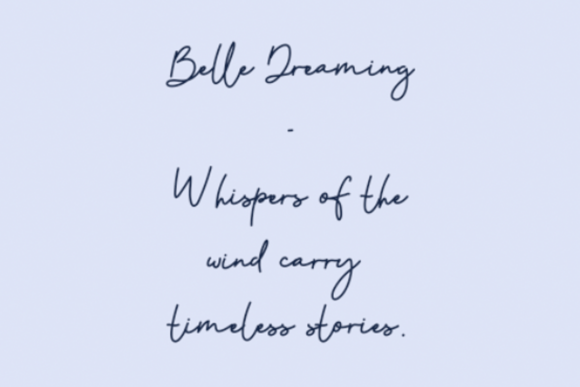 Belle Dreaming
-
Whispers of the
wind carry
timeless stories.